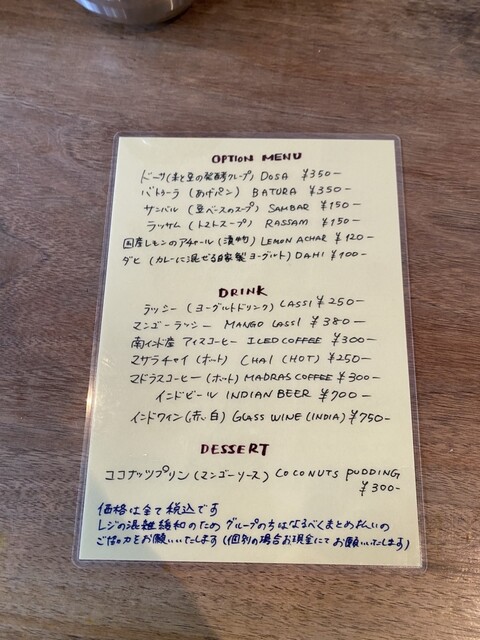 OPTION MENU
ドーサ(米と豆の発酵クレープ) DOSA ¥350-
バトゥーラ (あげパン) BATURA ¥350-
サンバル (豆ベースのスープ) SAMBAR ¥150-
ラッサム (トマトスープ) RASSAM ¥150-
国産レモンのアチャール(漬物) LEMON ACHAR ¥120-
ダヒ (カレーに混ぜる自家製ヨーグルト) DAHI ¥100-
DRINK
ラッシー (ヨーグルトドリンク) LASSI ¥250-
マンゴーラッシー MANGO LASSI ¥380-
南インド産 アイスコーヒー ICED COFFEE ¥300-
マサラチャイ (ホット) CHAI (HOT) ¥250-
マドラスコーヒー (ホット) MADRAS COFFEE ¥300-
インドビール INDIAN BEER ¥700-
インドワイン(赤、白) GLASS WINE (INDIA) ¥750-
DESSERT
ココナッツプリン (マンゴーソース) COCONUTS PUDDING
¥300-
価格は全て税込です
レジの混雑緩和のため グループの方はなるべくまとめ払いの
ご協力をお願いいたします (個別の場合お現金にてお願いいたします)